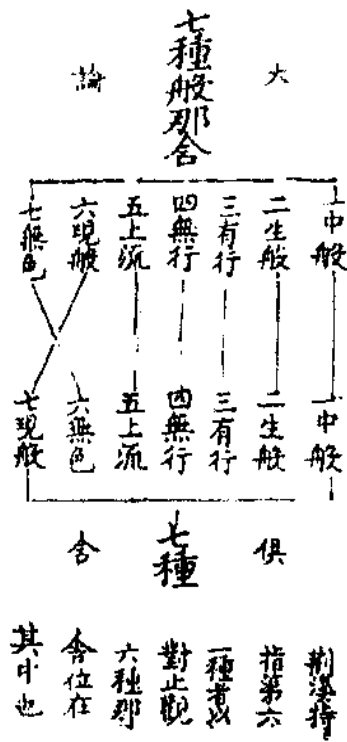 大
七種般那含
論
一中般
二生般
三有行
四無行
五上流
六現般
七無色
一中般
二生般
三有行
四無行
五上流
六無色
七現般
俱
七種
舍
荊溪特
指第六
一種者以
對止觀
六種那
含位在
其中也